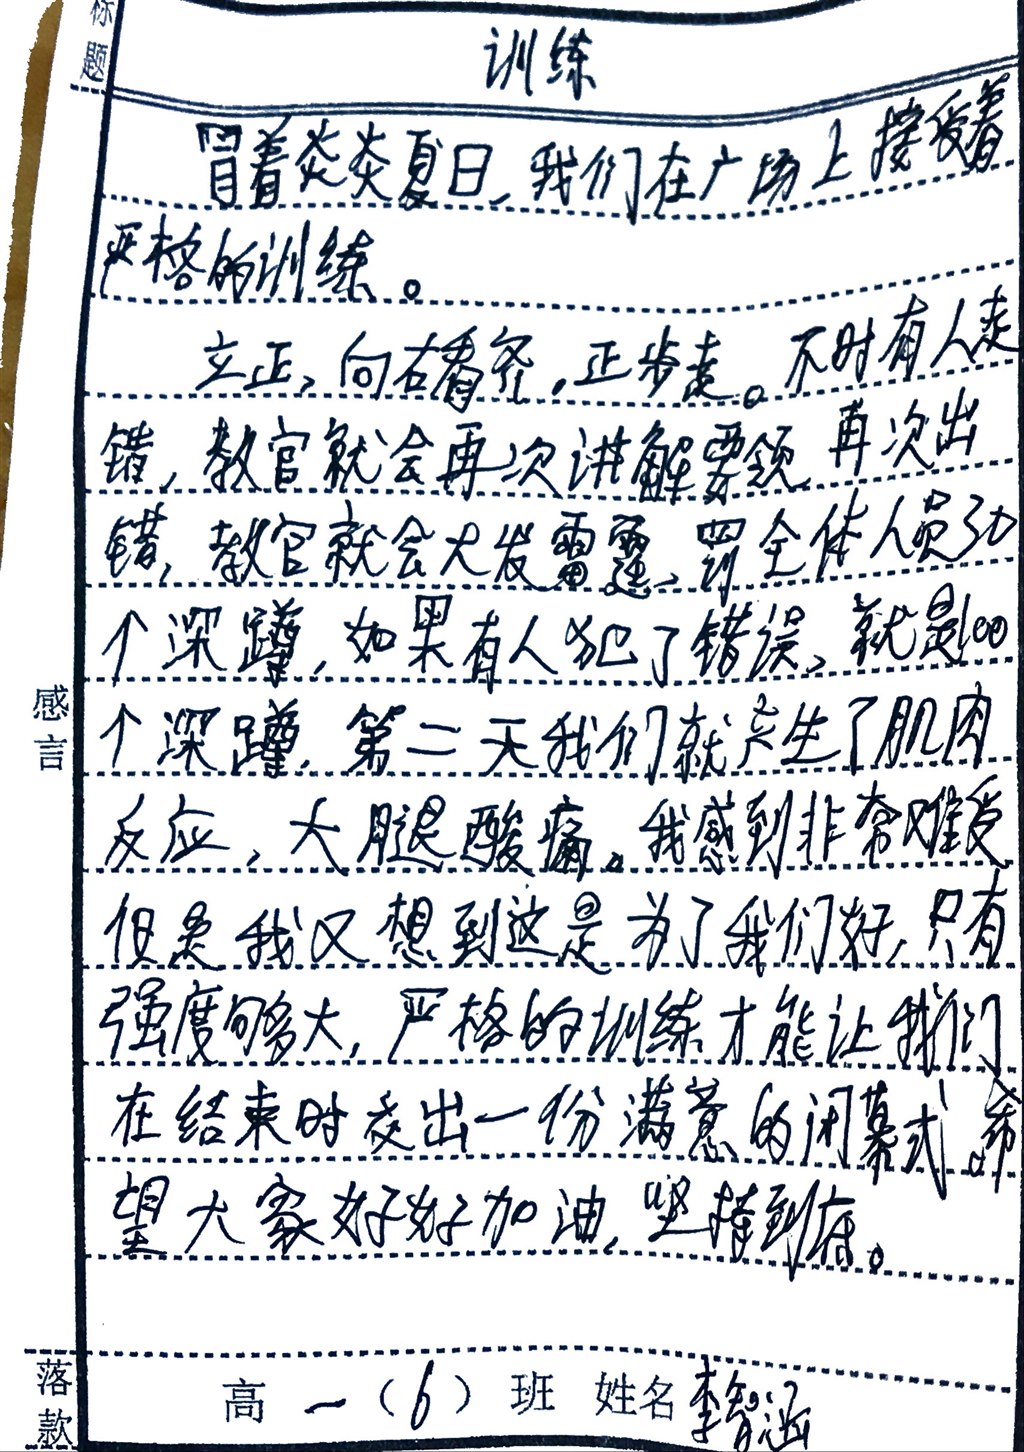 标题
训练
冒着炎炎夏日,我们在广场上接受着
严格的训练。
立正,向右看齐,正步走。不时有人走
错,教官就会再次讲解要领,再次出
错,教官就会大发雷霆,罚全体人员30
个深蹲,如果有人犯了错误,就是100
个深蹲,第二天我们就产生了肌肉
反应,大腿酸痛。我感到非常难受
但是我又想到这是为了我们好,只有
强度够大,严格的训练才能让我们
在结束时交出一份满意的闭幕式。希
望大家好好加油,坚持到底。
感言
落款
高一(6)班 姓名李智涵